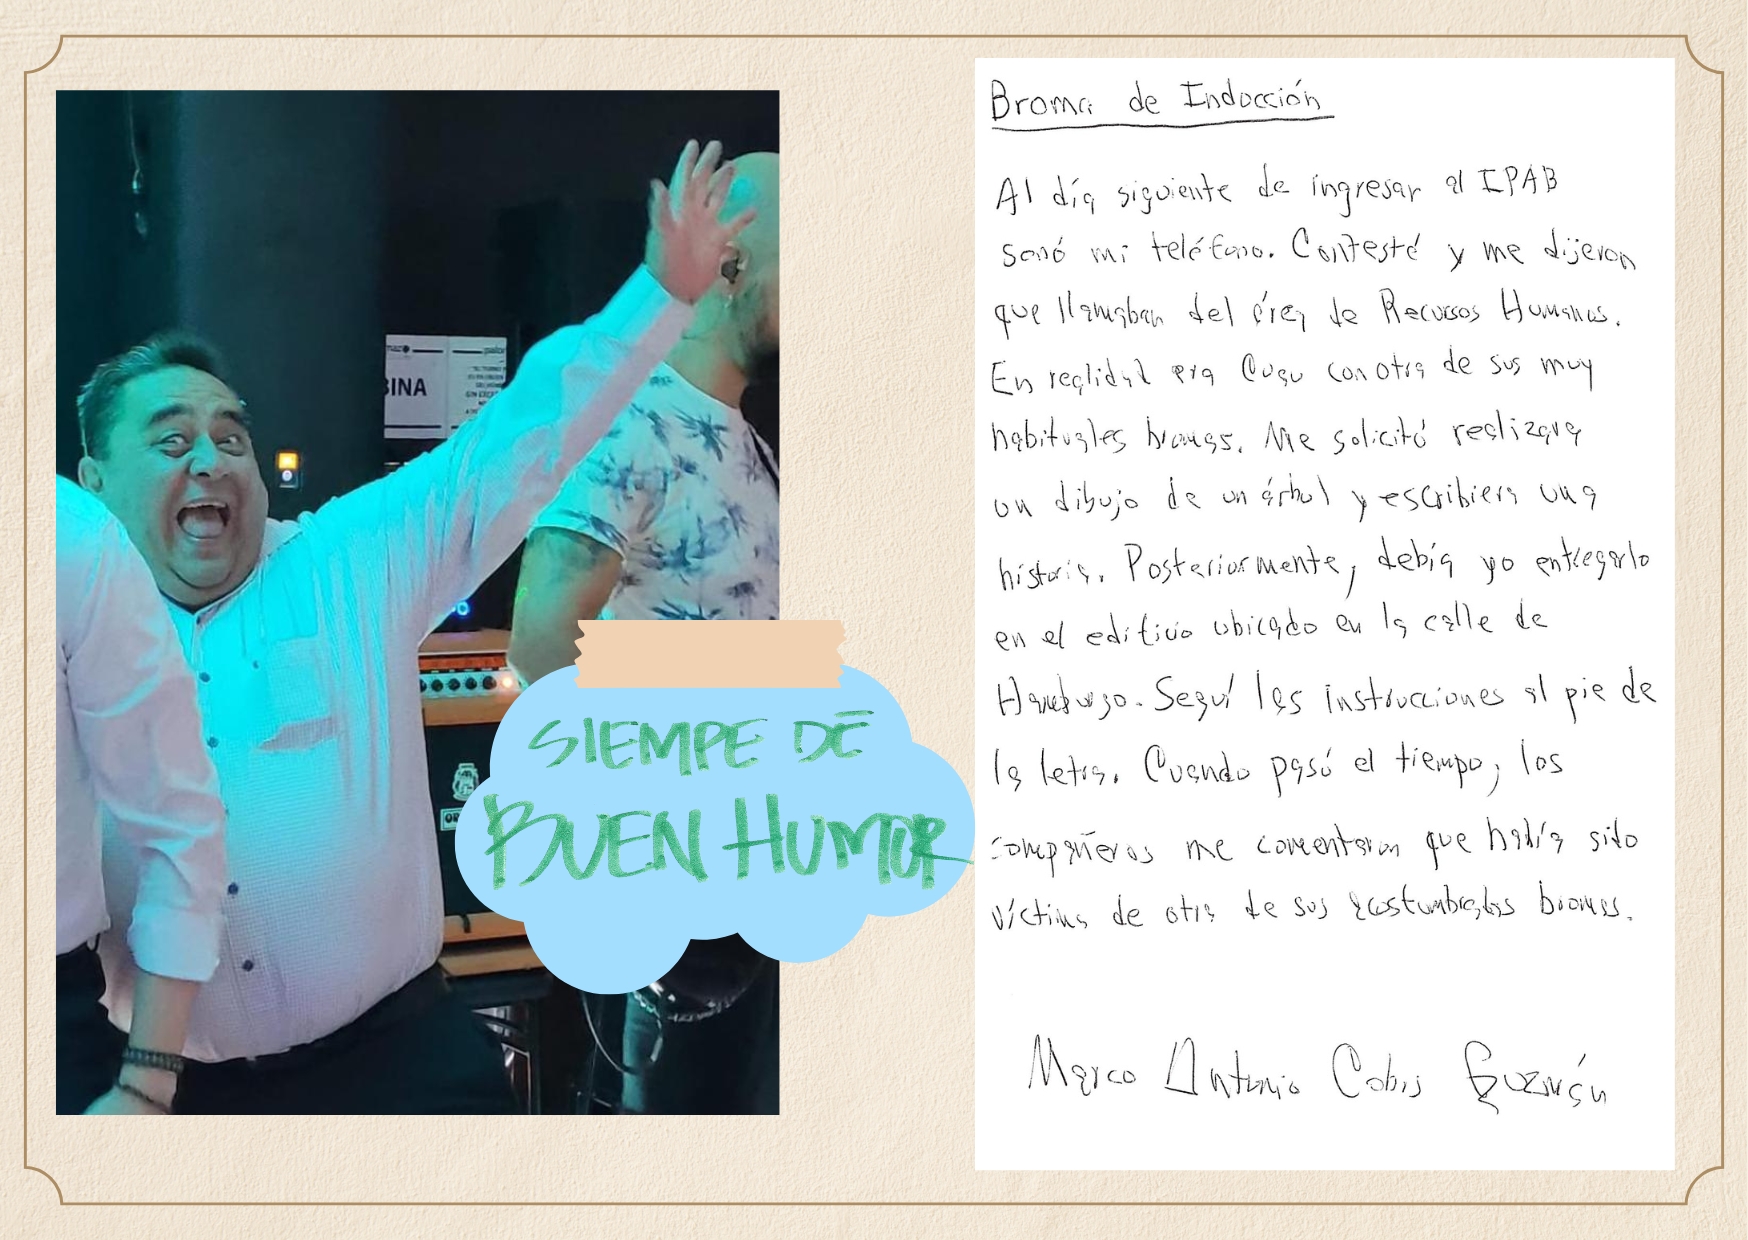 BINA
SIEMPE DE
BUEN HUMOR
Broma de Inducción
Al día siguiente de ingresar al IPAB
sonó mi teléfono. Contesté y me dijeron
que llamaban del área de Recursos Humanos.
En realidad era Cucu con otra de sus muy
habituales bromas. Me solicitó realizara
un dibujo de un árbol y escribiera una
historia. Posteriormente, debía yo entregarlo
en el edificio ubicado en la calle de
Hamburgo. Seguí las instrucciones al pie de
la letra. Cuando pasó el tiempo, los
compañeros me comentaron que había sido
víctima de otra de sus acostumbradas bromas.
Marco Antonio Cobis Guzmán